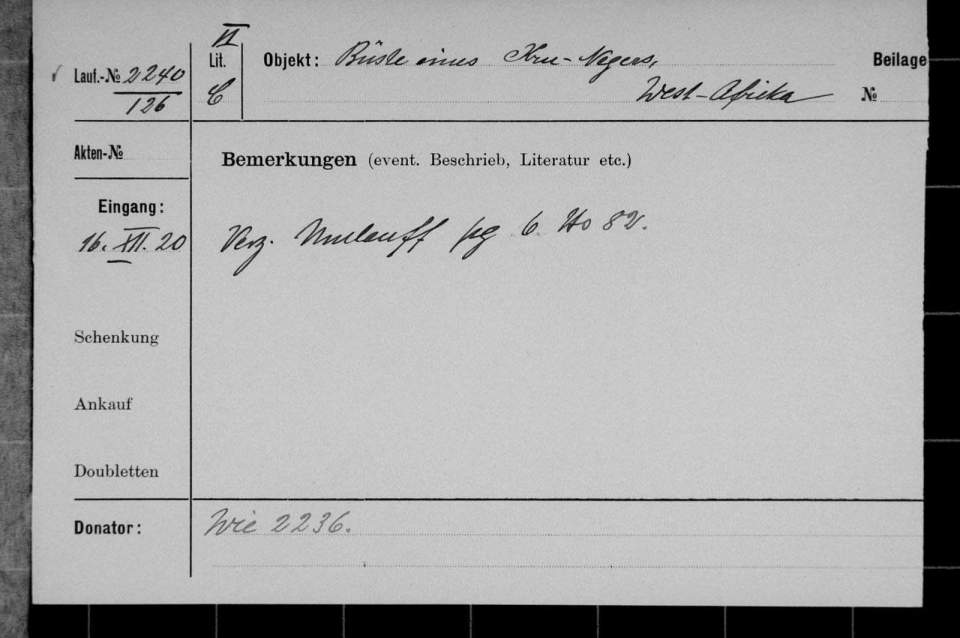 VI
Lauf.-№ 2240
126
Lit.
C
Objekt: Büste eines Kru-Negers,
West-Afrika
Beilage
№
Akten-№
Bemerkungen (event. Beschrieb, Literatur etc.)
Eingang:
16. XII. 20
Verz. Umlauff pg 6. No 82.
Schenkung
Ankauf
Doubletten
Donator:
Wie 2236.